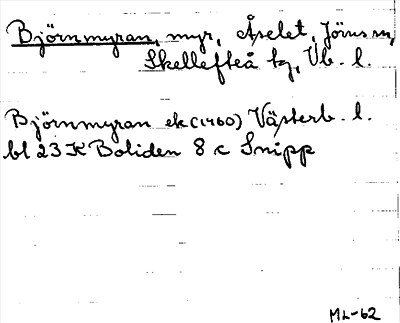 Björnmyran, myr, Åselet, Jörns sn,
Skellefteå tg, Vb. l.
Björnmyran ek (1960) Västerb. l.
bl 23 K Boliden 8 c Snipp
ML-62